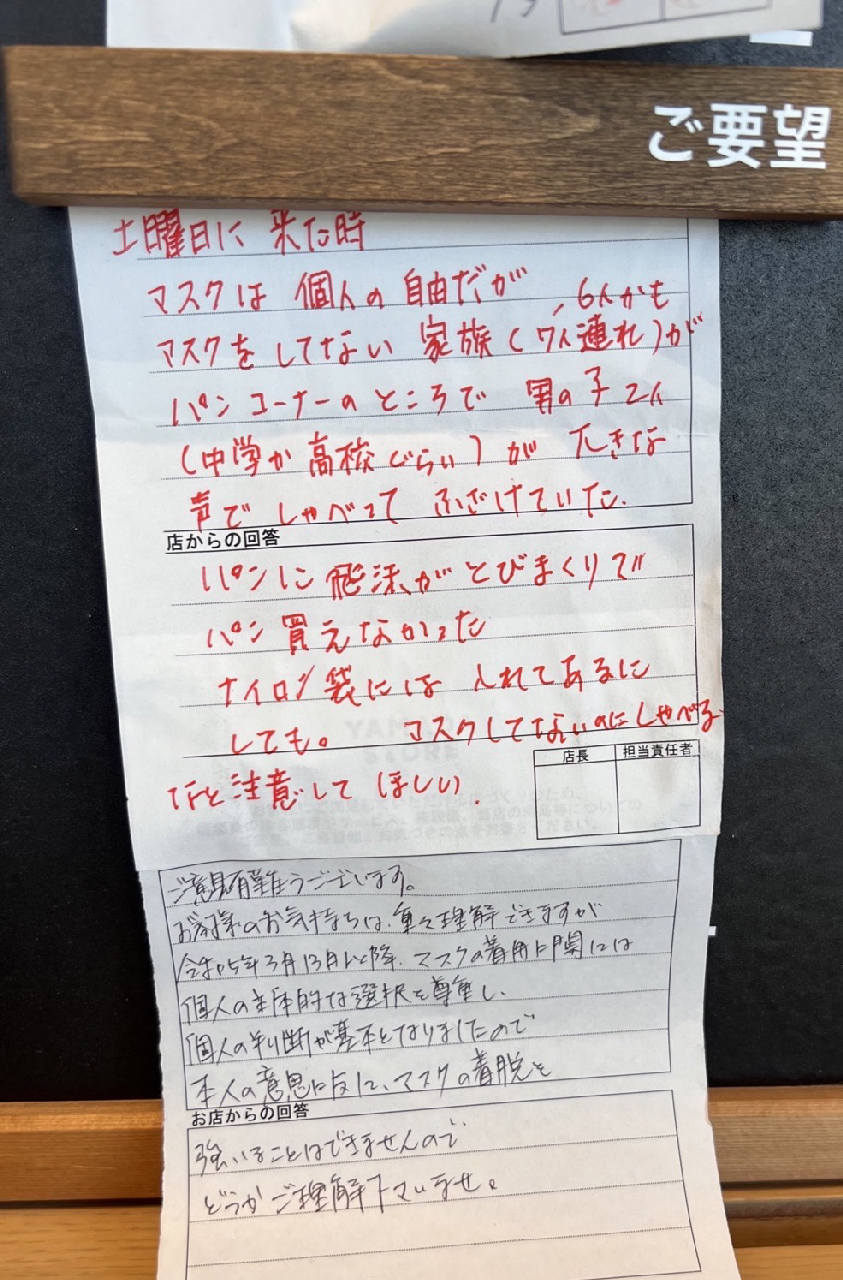 ご要望
土曜日に 来た時
マスクは 個人の 自由だが 、6人かも
マスクを してない 家族(7人連れ)が
パン コーナーの ところで 男の子 2人
(中学か 高校ぐらい)が 大きな
声で しゃべって ふざけていた.
店からの回答
パンに 飛沫が とびまくりで
パン 買えなかった
ナイロン袋には 入れてあるに
しても。 マスクしてないのに しゃべる
なと 注意して ほしい.
店長 担当責任者
ご意見有難うございます。
お客様のお気持ちは、重々理解できますが
令和5年3月13日以降、マスクの着用に関しては
個人の主体的な選択を尊重し、
個人の判断が基本となりましたので
本人の意思に反し、マスクの着脱を
お店からの回答
強いることはできませんので
どうかご理解下さいませ。